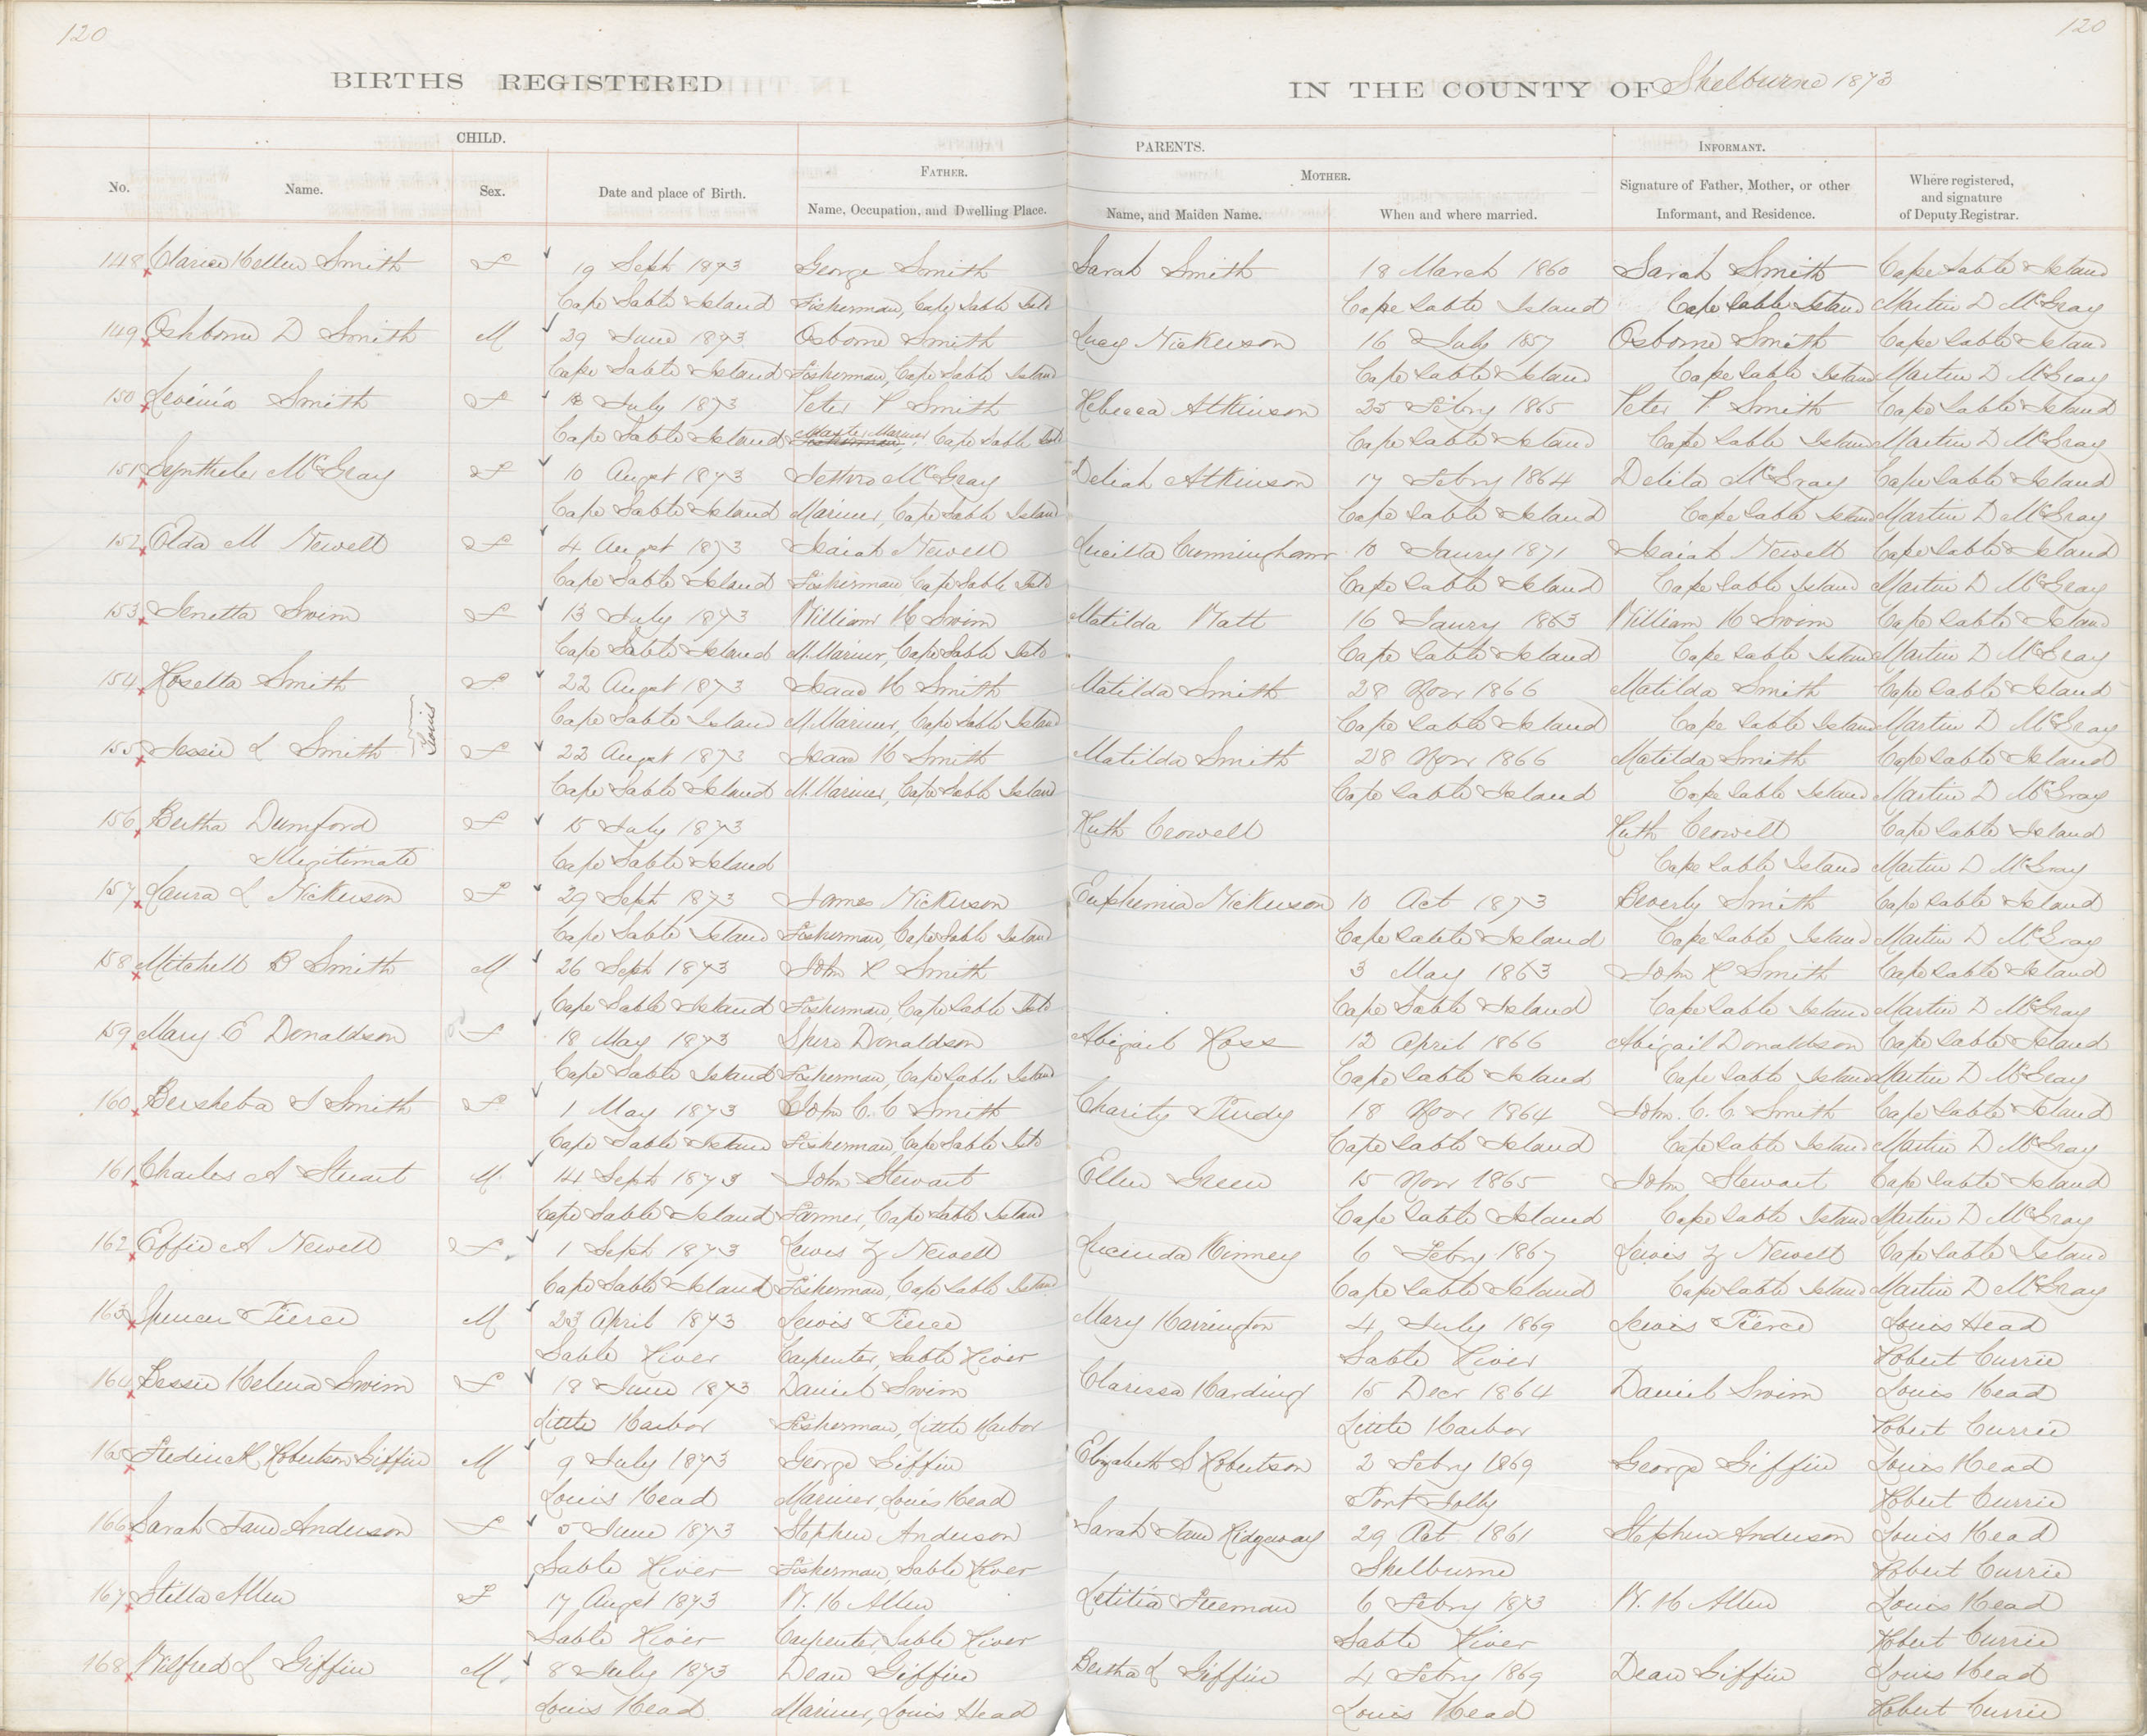 120
120
BIRTHS REGISTERED
IN THE COUNTY OF Shelburne 1873
CHILD.
PARENTS.
INFORMANT.
No.
Name.
Sex.
Date and place of Birth.
FATHER.
Name, Occupation, and Dwelling Place.
MOTHER.
Name, and Maiden Name.
When and where married.
Signature of Father, Mother, or other
Informant, and Residence.
Where registered,
and signature
of Deputy Registrar.
148 Clarice Hellen Smith F 19 Sept 1873 George Smith Sarah Smith 18 March 1860 Sarah Smith Cape Sable Island
Cape Sable Island Fisherman, Cape Sable Isld Cape Sable Island Cape Sable Island Martin D McGray
149 Oshborne D Smith M 29 June 1873 Osborne Smith Lucy Nickerson 16 July 1857 Osborne Smith Cape Sable Island
Cape Sable Island Fisherman, Cape Sable Island Cape Sable Island Cape Sable Island Martin D McGray
150 Levinia Smith F 18 July 1873 Peter P Smith Rebecca Atkinson 25 Febry 1865 Peter P. Smith Cape Sable Island
Cape Sable Island Master Mariner, Cape Sable Isld Cape Sable Island Cape Sable Island Martin D McGray
151 McGray F 10 Augst 1873 Jethro McGray Deliah Atkinson 17 Febry 1864 Delila McGray Cape Sable Island
Cape Sable Island Mariner, Cape Sable Island Cape Sable Island Cape Sable Island Martin D McGray
152 Elda M Newell F 4 Augst 1873 Isaiah Newell Lucilla Cunningham 10 Janry 1871 Isaiah Newell Cape Sable Island
Cape Sable Island Fisherman, Cape Sable Isld Cape Sable Island Cape Sable Island Martin D McGray
153 Jenetta Swim F 13 July 1873 William H Swim Matilda Watt 16 Janry 1863 William H Swim Cape Sable Island
Cape Sable Island M. Mariner, Cape Sable Isld Cape Sable Island Cape Sable Island Martin D McGray
154 Rosella Smith F 22 Augst 1873 Isaac H Smith Matilda Smith 28 Novr 1866 Matilda Smith Cape Sable Island
Twins
Cape Sable Island M. Mariner, Cape Sable Island Cape Sable Island Cape Sable Island Martin D McGray
155 Jessie L Smith F 22 Augst 1873 Isaac H Smith Matilda Smith 28 Novr 1866 Matilda Smith Cape Sable Island
Cape Sable Island M. Mariner, Cape Sable Island Cape Sable Island Cape Sable Island Martin D McGray
156 Bertha Dumford F 15 July 1873 Ruth Crowell Ruth Crowell Cape Sable Island
Illegitimate Cape Sable Island Cape Sable Island Martin D McGray
157 Laura L Nickerson F 29 Sept 1873 James Nickerson Euphemia Nickerson 10 Oct 1873 Beverly Smith Cape Sable Island
Cape Sable Island Fisherman, Cape Sable Island Cape Sable Island Cape Sable Island Martin D McGray
158 Mitchell B Smith M 26 Sept 1873 John R Smith 3 May 1863 John R Smith Cape Sable Island
Cape Sable Island Fisherman, Cape Sable Isld Cape Sable Island Cape Sable Island Martin D McGray
159 Mary E Donaldson F 18 May 1873 Spero Donaldson Abigail Ross 12 April 1866 Abigail Donaldson Cape Sable Island
Cape Sable Island Fisherman, Cape Sable Island Cape Sable Island Cape Sable Island Martin D McGray
160 Bersheba S Smith F 1 May 1873 John C. C Smith Charity Purdy 18 Novr 1864 John. C. C Smith Cape Sable Island
Cape Sable Island Fisherman, Cape Sable Isld Cape Sable Island Cape Sable Island Martin D McGray
161 Charles A Stuart M 14 Sept 1873 John Stewart Ellen Green 15 Novr 1865 John Stewart Cape Sable Island
Cape Sable Island Farmer, Cape Sable Island Cape Sable Island Cape Sable Island Martin D McGray
162 Effie A Newell F. 1 Sept 1873 Lewis Z Newell Lucinda Kinney 6 Febry 1867 Lewis Z Newell Cape Sable Island
Cape Sable Island Fisherman, Cape Sable Island Cape Sable Island Cape Sable Island Martin D McGray
163 Spencer Pierce M 23 April 1873 Lewis Pierce Mary Harrington 4 July 1869 Lewis Pierce Louis Head
Sable River Carpenter, Sable River Sable River Robert Currie
164 Bessie Helena Swim F 18 June 1873 Daniel Swim Clarissa Harding 15 Decr 1864 Daniel Swim Louis Head
Little Harbor Fisherman, Little Harbor Little Harbor Robert Currie
165 Frederick Robertson Giffin M 9 July 1873 George Giffin Elizabeth S Robertson 2 Febry 1869 George Giffin Louis Head
Louis Head Mariner, Louis Head Port Jolly Robert Currie
166 Sarah Jane Anderson F 5 June 1873 Stephen Anderson Sarah Jane Ridgeway 29 Oct 1861 Stephen Anderson Louis Head
Sable River Fisherman, Sable River Shelburne Robert Currie
167 Stilla Allen F 17 Augst 1873 W. H Allen Letitia Freeman 6 Febry 1873 W. H Allen Louis Head
Sable River Carpenter, Sable River Sable River Robert Currie
168 Wilfred L Giffin M. 8 July 1873 Dean Giffin Bertha L Giffin 4 Febry 1869 Dean Giffin Louis Head
Louis Head Mariner, Louis Head Louis Head Robert Currie